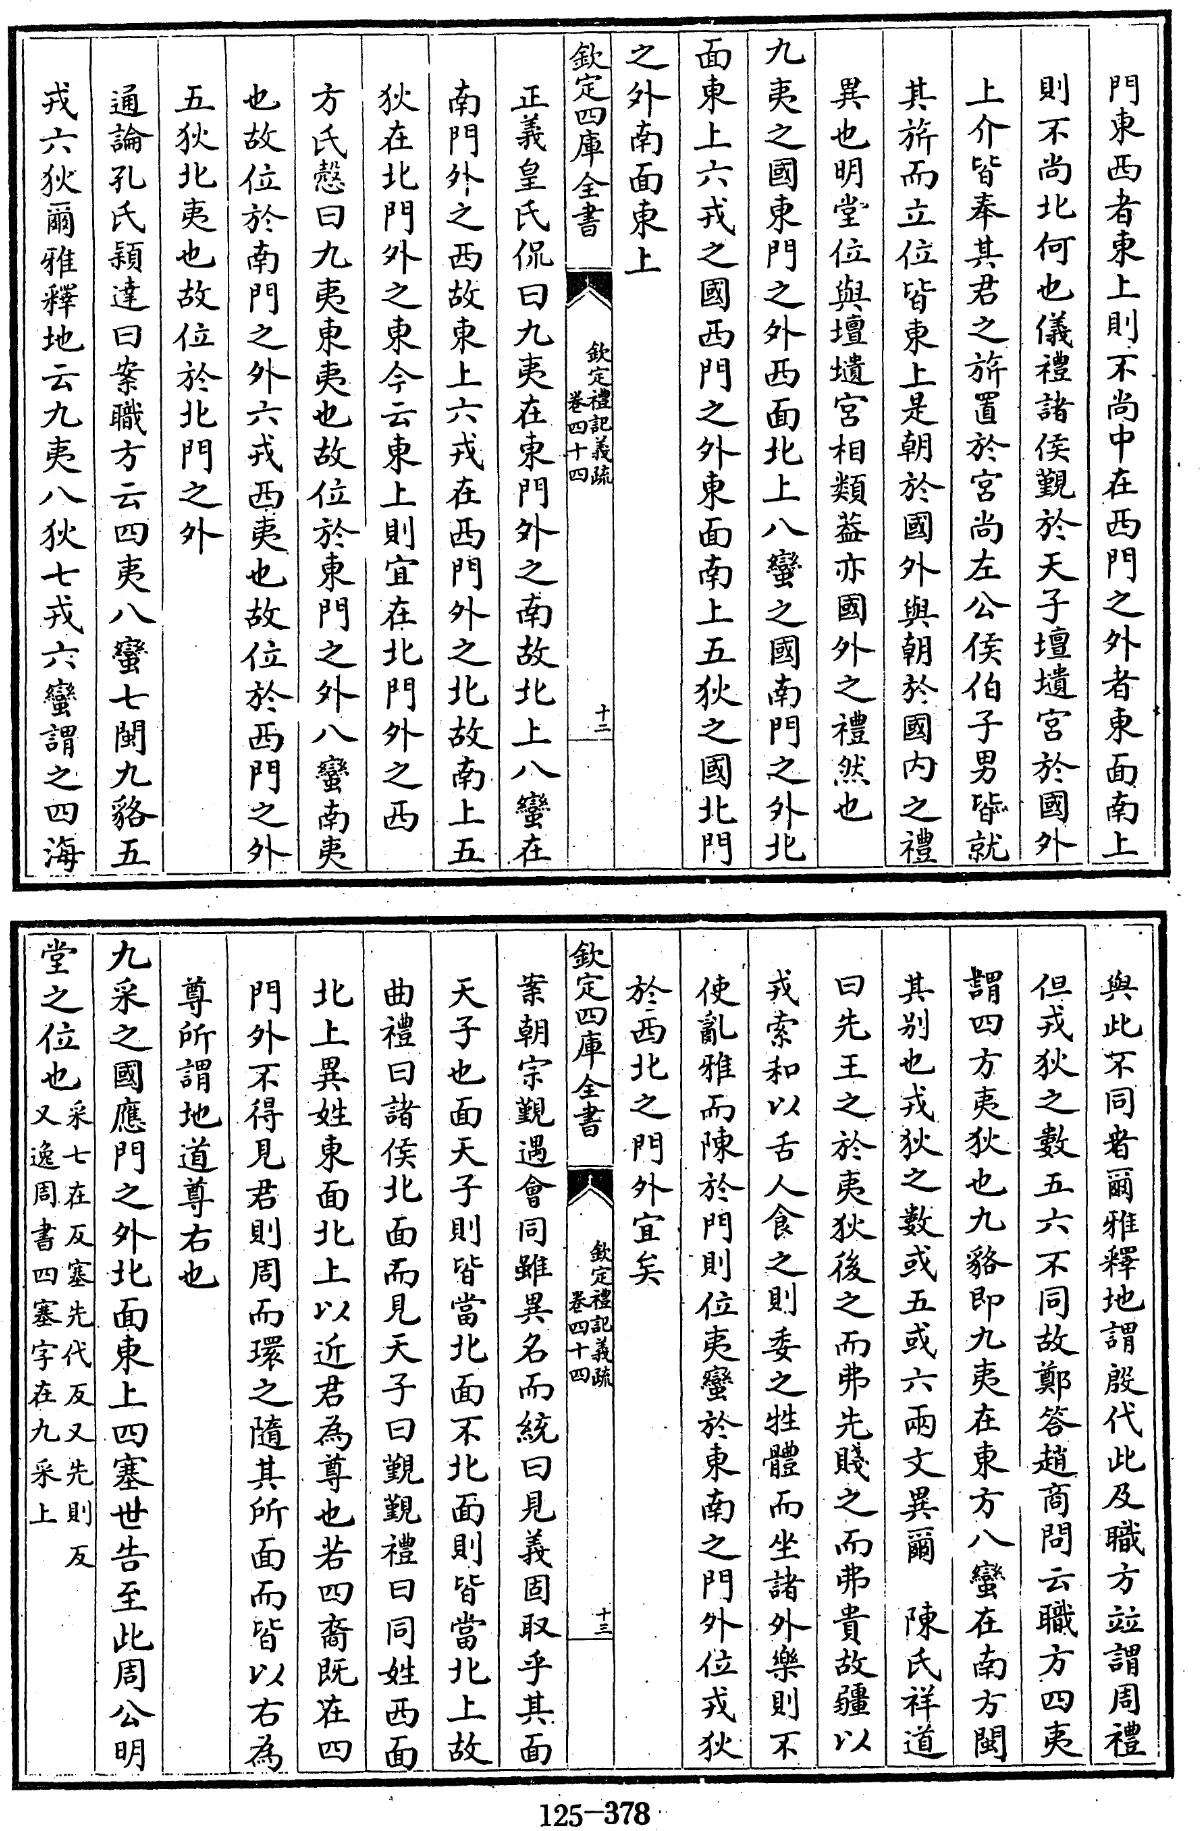 門東西者東上則不尚中在西門之外者東面南上
則不尚北何也儀禮諸侯覲於天子壇壝宮於國外
上介皆奉其君之旂置於宮尚左公侯伯子男皆就
其旂而立位皆東上是朝於國外與朝於國内之禮
異也明堂位與壇壝宮相類葢亦國外之禮然也
九夷之國東門之外西面北上八蠻之國南門之外北
面東上六戎之國西門之外東面南上五狄之國北門
之外南面東上
欽定四庫全書
欽定禮記義疏
卷四十四
十二
正義皇氏侃曰九夷在東門外之南故北上八蠻在
南門外之西故東上六戎在西門外之北故南上五
狄在北門外之東今云東上則宜在北門外之西
方氏慤曰九夷東夷也故位於東門之外八蠻南夷
也故位於南門之外六戎西夷也故位於西門之外
五狄北夷也故位於北門之外
通論孔氏穎達曰案職方云四夷八蠻七閩九貉五
戎六狄爾雅釋地云九夷八狄七戎六蠻謂之四海
與此不同者爾雅釋地謂殷代此及職方竝謂周禮
但戎狄之數五六不同故鄭答趙商問云職方四夷
謂四方夷狄也九貉即九夷在東方八蠻在南方閩
其别也戎狄之數或五或六兩文異爾 陳氏祥道
曰先王之於夷狄後之而弗先賤之而弗貴故疆以
戎索和以舌人食之則委之牲體而坐諸外樂則不
使亂雅而陳於門則位夷蠻於東南之門外位戎狄
於西北之門外宜矣
欽定四庫全書
欽定禮記義疏
卷四十四
十三
案朝宗覲遇會同雖異名而統曰見義固取乎其面
天子也面天子則皆當北面不北面則皆當北上故
曲禮曰諸侯北面而見天子曰覲覲禮曰同姓西面
北上異姓東面北上以近君為尊也若四裔既在四
門外不得見君則周而環之隨其所面而皆以右為
尊所謂地道尊右也
九采之國應門之外北面東上四塞世告至此周公明
堂之位也采七在反塞先代反又先則反
又逸周書四塞字在九采上
125-378